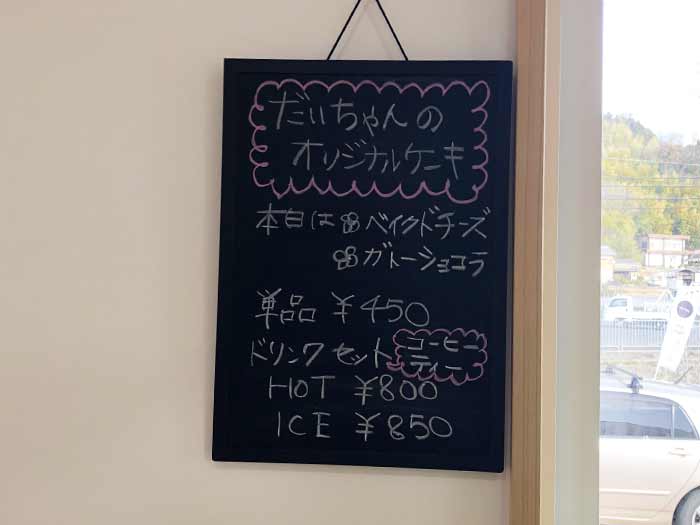 だいちゃんの
オリジナルケーキ
本日は ベイクドチーズ
ガトーショコラ
単品 ¥450
ドリンクセット コーヒー
ティー
HOT ¥800
ICE ¥850